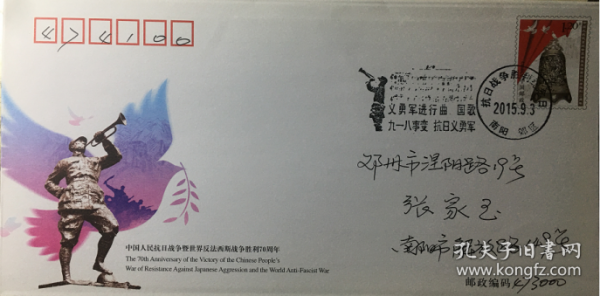 474100
1.20元
抗日战争胜利
日
2015.9.3
南阳
义勇军进行曲 国歌
九一八事变 抗日义勇军
邓州市涅阳路19号
张家玉
南阳市
中国人民抗日战争暨世界反法西斯战争胜利70周年
The 70th Anniversary of the Victory of the Chinese People's
War of Resistance Against Japanese Aggression and the World Anti-Fascist War
邮政编码 473000
孔夫子旧书网
www.kongfz.com